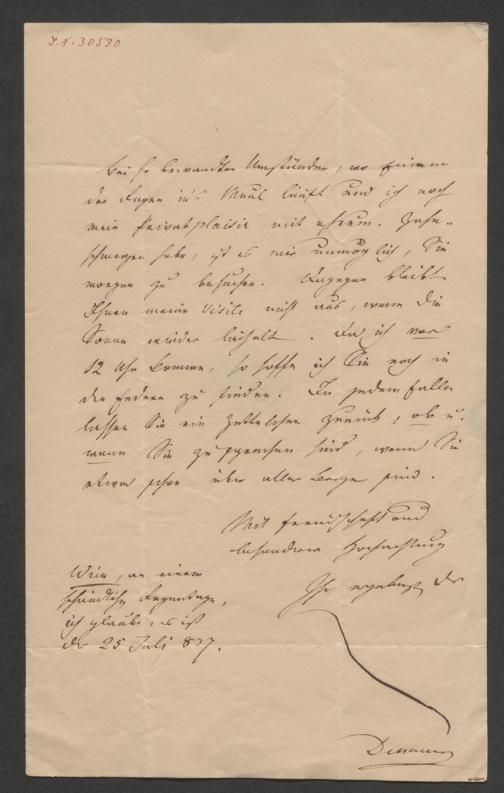 J.N. 30530
Bei so bewandten Umständen, wo Einem
der Regen in's Maul läuft und ich noch
mein Privatplaisir mit Zahn-
schmerzen habe, ist es mir unmöglich, Sie
morgen zu besuchen. Dagegen bleibt
Ihnen meine Visite nicht aus, wenn die
Sonne wieder lächelt. Da ich vor
12 Uhr komme, so hoffe ich Sie noch in
den Federn zu finden. In jedem Falle
lassen Sie ein Zettelchen zurück, ob u.
wann Sie zu sprechen sind, wenn Sie
etwa schon über alle Berge sind.
Mit Freundschaft und
besonderer Hochachtung
Ihr ergebenst der
Wien, an einem
schändlichen Regentage,
ich glaube, es ist
der 25 Juli 837.
Dessauer